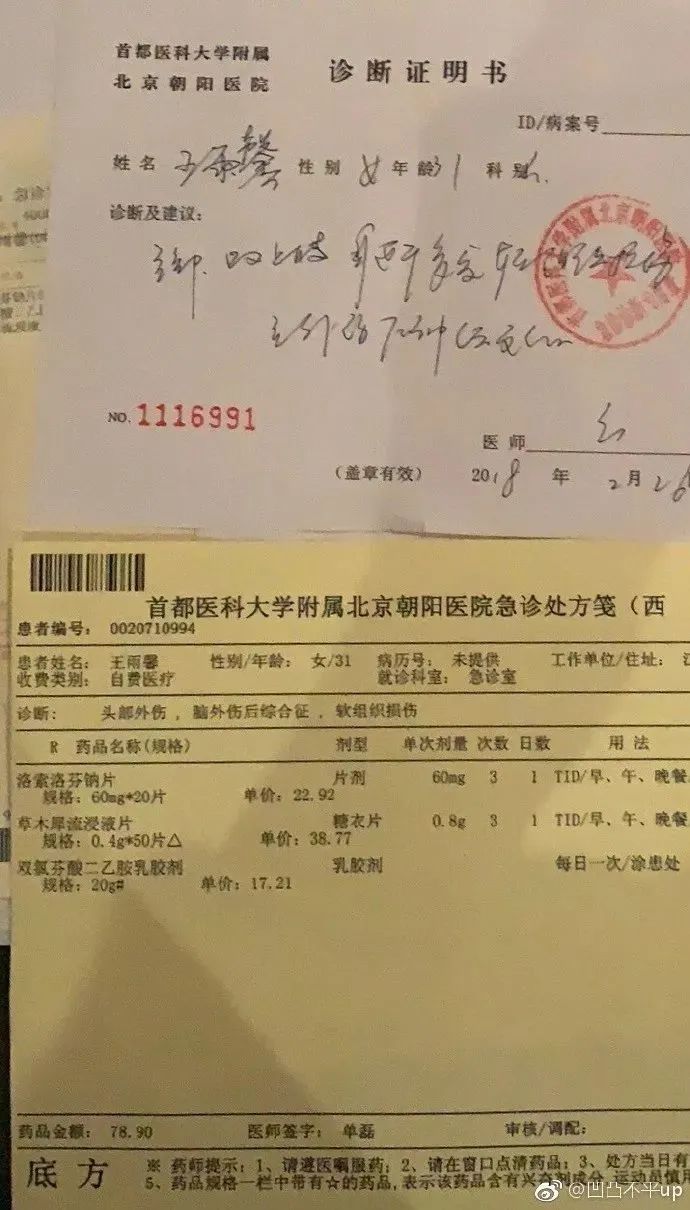 首都医科大学附属
北京朝阳医院
诊断证明书
ID/病案号
姓名 王雨馨 性别 女 年龄 31 科别
诊断及建议:
NO. 1116991
医师
(盖章有效) 2018 年 2 月 26
首都医科大学附属北京朝阳医院急诊处方笺(西
患者编号: 0020710994
患者姓名: 王雨馨 性别/年龄: 女/31 病历号: 未提供 工作单位/住址: 江
收费类别: 自费医疗 就诊科室: 急诊室
诊断: 头部外伤,脑外伤后综合征,软组织损伤
R 药品名称(规格) 剂型 单次剂量 次数 日数 用法
洛索洛芬钠片 片剂 60mg 3 1 TID/早、午、晚餐
规格: 60mg*20片 单价: 22.92
草木犀流浸液片 糖衣片 0.8g 3 1 TID/早、午、晚餐
规格: 0.4g*50片△ 单价: 38.77
双氯芬酸二乙胺乳胶剂 乳胶剂 每日一次/涂患处
规格: 20g# 单价: 17.21
药品金额: 78.90 医师签字: 单磊 审核/调配:
底方 ※ 药师提示: 1、请遵医嘱服药; 2、请在窗口点清药品; 3、处方当日有
5、药品规格一栏中带有☆的药品,表示该药品含有兴奋剂成分,运动员慎用
@凹凸不平up